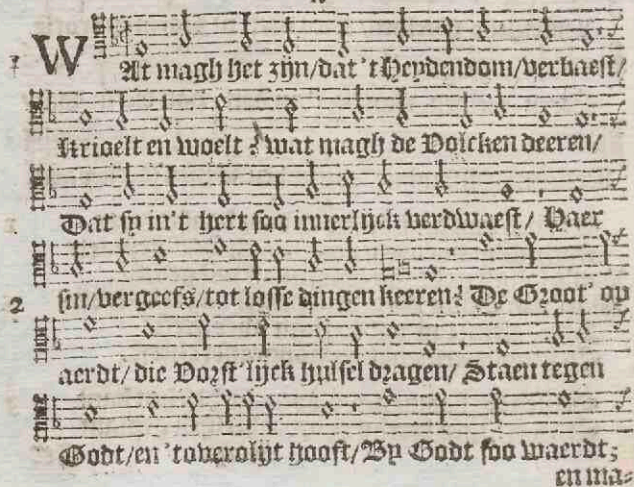 1 WAt magh het zijn/dat 't Heydendom/verbaest/
krioelt en woelt? wat magh de Volcken deeren/
Dat sy in't hert soo innerlijck verdwaest/ Haer
sin/vergeefs/tot losse dingen keeren? De Groot' op
2 aerdt/die Vorst'lijck hulsel dragen/ Staen tegen
Godt/en 'toverolijt hooft/By Godt soo waerdt;
en ma=